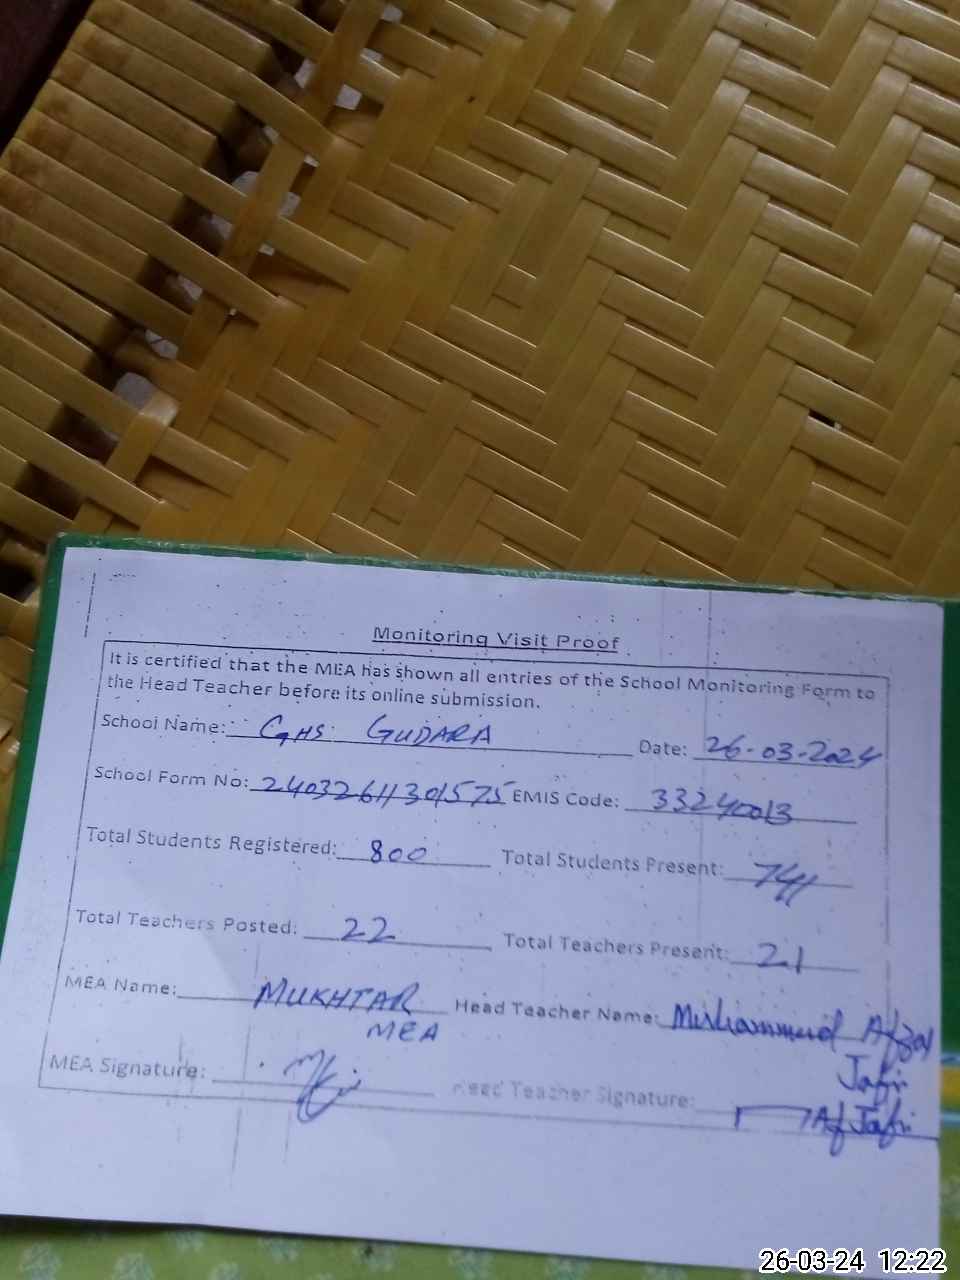 Monitoring Visit Proof
It is certified that the MEA has shown all entries of the School Monitoring Form to
the Head Teacher before its online submission.
School Name: GHS GUDARA Date: 26-03-2024
School Form No: 24032611301575 EMIS Code: 33240013
Total Students Registered: 800 Total Students Present: 741
Total Teachers Posted: 22 Total Teachers Present: 21
MEA Name: MUKHTAR Head Teacher Name: Muhammad Afzal
MEA Jafri
MEA Signature: Head Teacher Signature: Af Jafri
26-03-24 12:22